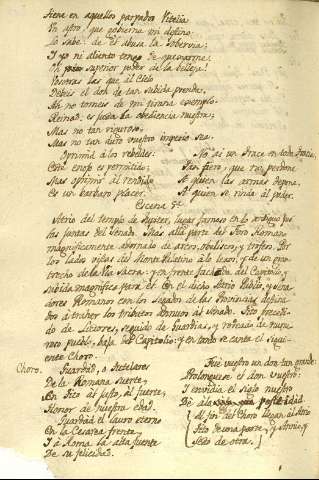 tiene en aquellos parpados Vitelia
Un astro, que gobierna mi destino:
Lo sabe: de el abusa la sobervia;
I yo ni aliento tengo de quexarme.
superior poder de la belleza!
Vosotras las que al Cielo
Debeis el don de tan subida prenda,
Ah no tomeis de mi tirana exemplo.
Reinad: es justa la obediencia nuestra;
Mas no tan riguroso,
Mas no tan duro vuestro imperio sea.
Oprimid a los rebeldes:
Este enojo es permitido;
Mas oprimir al rendido
Es un barbaro placer.
No ai un Trace en toda Tracia,
Tan fiero, que no perdone
A quien las armas depone,
A quien se rinda al poder.
Escena 5ª
Atrio del templo de Jupiter, lugar famoso en lo antiguo por
las juntas del Senado. Mas alla parte del Foro Romano
magnificamente adornado de arcos, obeliscos, y trofeos. Por
los lados vistas del Monte Palatino a lo lexos, y de un gran
trecho de la Via Sacra: y en frente fachada del Capitolio, y
subida magnifica para el. En el dicho Atrio Publio, y Sena-
dores Romanos con los Legados de las Provincias
a traher los tributos annuos al Senado. Tito precedi-
do de Lictores, seguido de Guardias, y rodeado de nume-
roso pueblo, baja del Capitolio: y en tanto se canta el sigui-
ente Choro.
Choro. Guardad, o Dioses tutelares
De la Romana suerte,
En Tito al justo, al fuerte,
Honor de nuestra edad.
Guardad el lauro eterno
En la Cesarea frente,
I a Roma la alta fuente
De su felicidad.
Fue vuestro un don tan grande:
Prolonguese el don vuestro;
I envidie el siglo nuestro
De a la posteridad.
Al fin del Choro llegan al Atrio
Tito de una parte, y Annio, y
Sexto de otra.